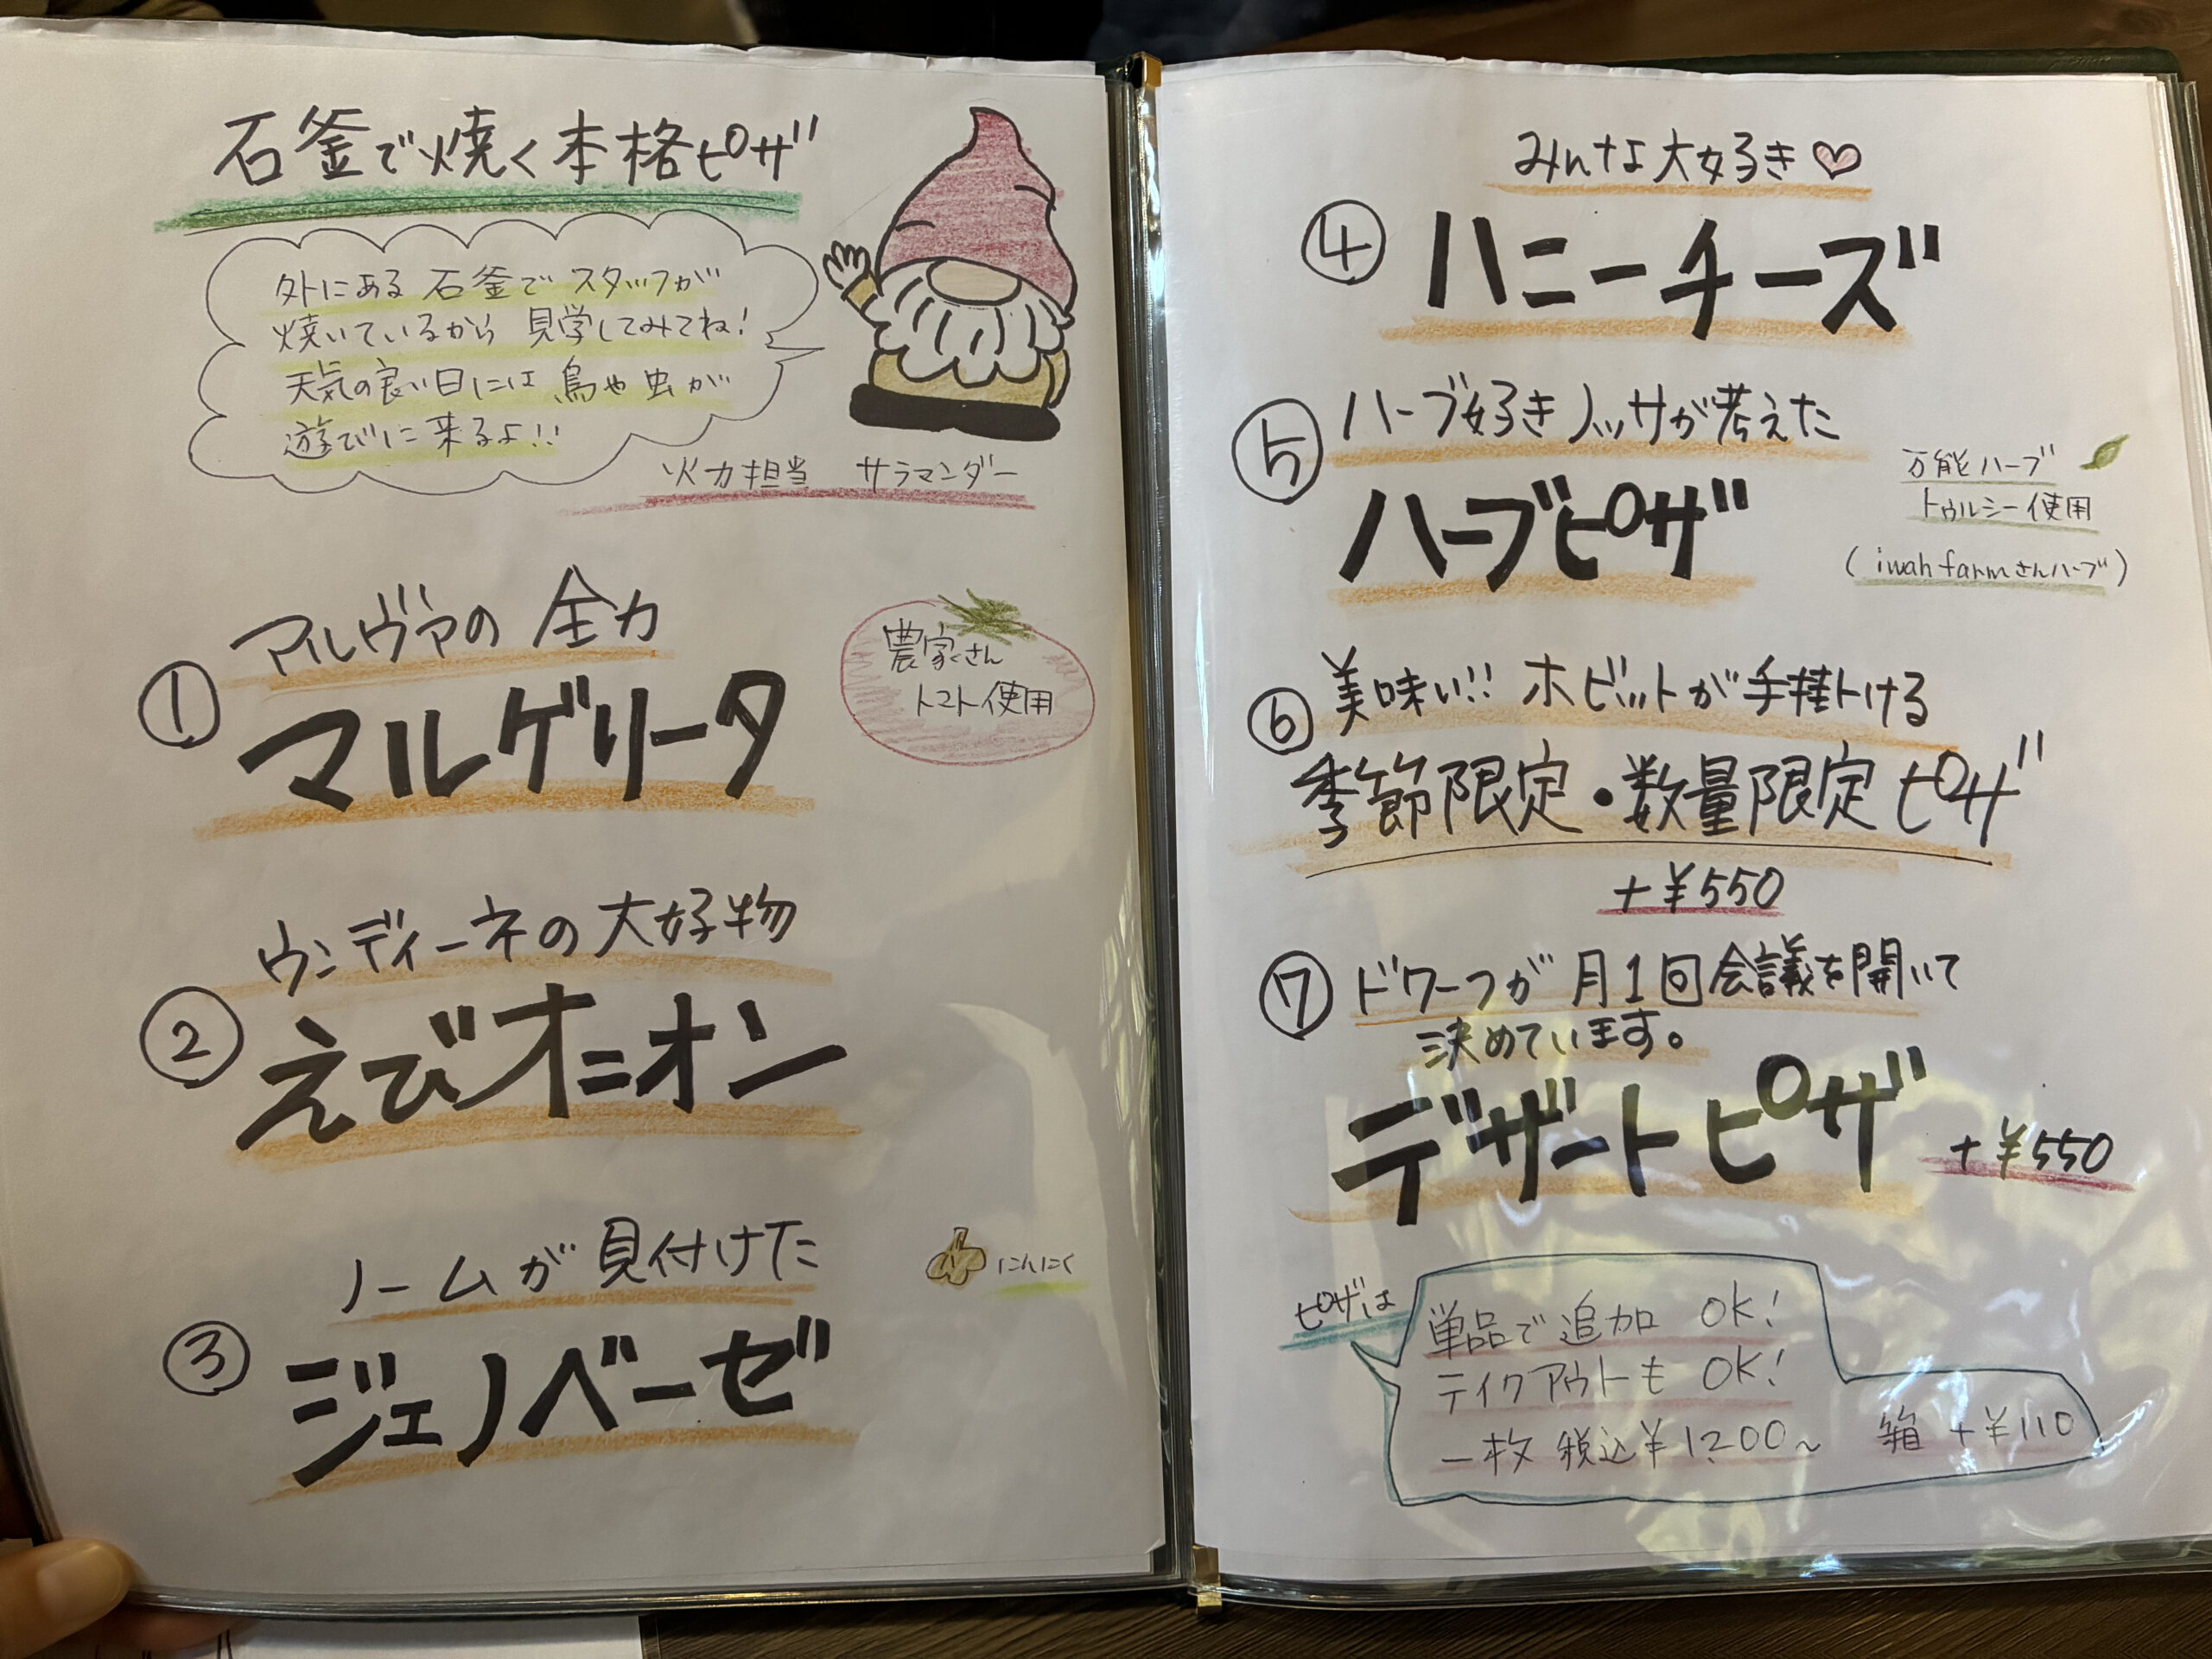 石釜で焼く本格ピザ
外にある 石釜で スタッフが
焼いているから 見学してみてね!
天気の良い日には 鳥や虫が
遊びに来るよ!!
火力担当 サラマンダー
アルヴァの 全力
① マルゲリータ
農家さん
トマト使用
ウンディーネの大好物
② えびオニオン
ノームが見付けた
にんにく
③ ジェノベーゼ
みんな大好き♡
④ ハニーチーズ
⑤ ハーブ好きノッサが考えた
ハーブピザ
万能ハーブ
トゥルシー使用
(iwah farmさんハーブ)
⑥ 美味い!! ホビットが手掛ける
季節限定・数量限定ピザ
+¥550
⑦ ドワーフが月1回会議を開いて
決めています。
デザートピザ +¥550
ピザは
単品で追加 OK!
テイクアウトも OK!
一枚 税込¥1200~ 箱 +¥110